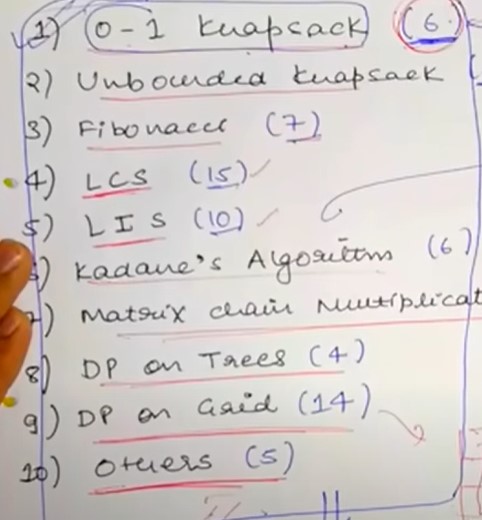 1) 0-1 Knapsack (6)
2) Unbounded Knapsack (
3) Fibonacci (7)
4) LCS (15)
5) LIS (10)
) Kadane's Algorithm (6)
) Matrix chain Multiplicat
8) DP on Trees (4)
9) DP on Grid (14)
10) Others (5)